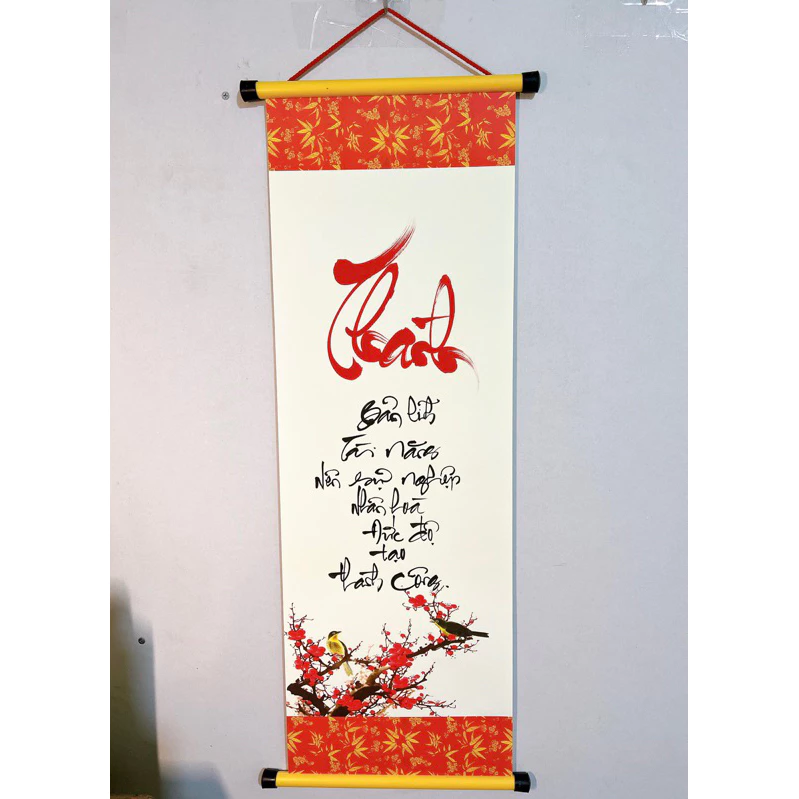 Thành
Bản lĩnh
Tài năng
Nên sự nghiệp
Nhân hoà
Đức độ
tạo
thành công.